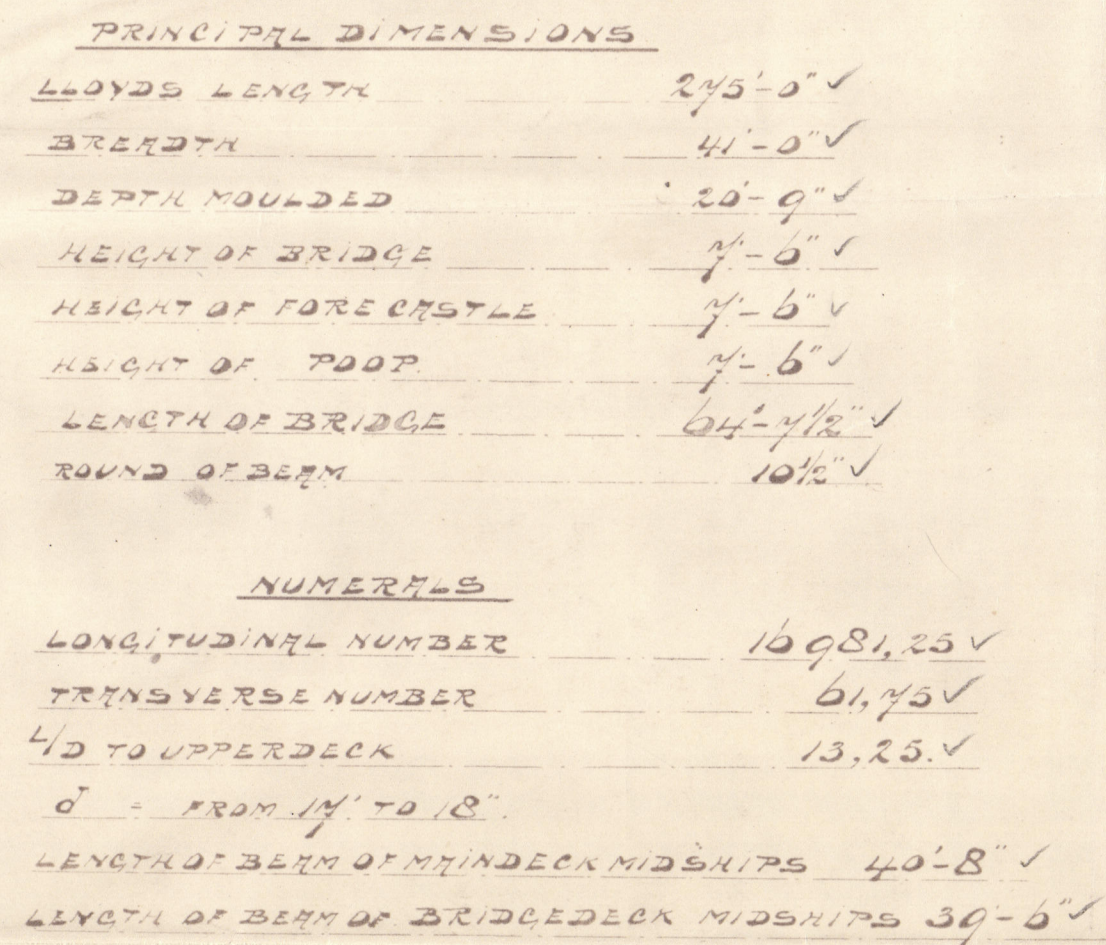 PRINCIPAL DIMENSIONS
LLOYDS LENGTH 275'-0" ✓
BREADTH 41'-0" ✓
DEPTH MOULDED 20'-9" ✓
HEIGHT OF BRIDGE 7'-6" ✓
HEIGHT OF FORE CASTLE 7'-6" ✓
HEIGHT OF POOP. 7'-6" ✓
LENGTH OF BRIDGE 64'-7 1/2" ✓
ROUND OF BEAM 10 1/2" ✓
NUMERALS
LONGITUDINAL NUMBER 16981,25 ✓
TRANSVERSE NUMBER 61,75 ✓
L/D TO UPPERDECK 13,25. ✓
d = FROM 17' TO 18".
LENGTH OF BEAM OF MAINDECK MIDSHIPS 40'-8" ✓
LENGTH OF BEAM OF BRIDGEDECK MIDSHIPS 39'-6" ✓